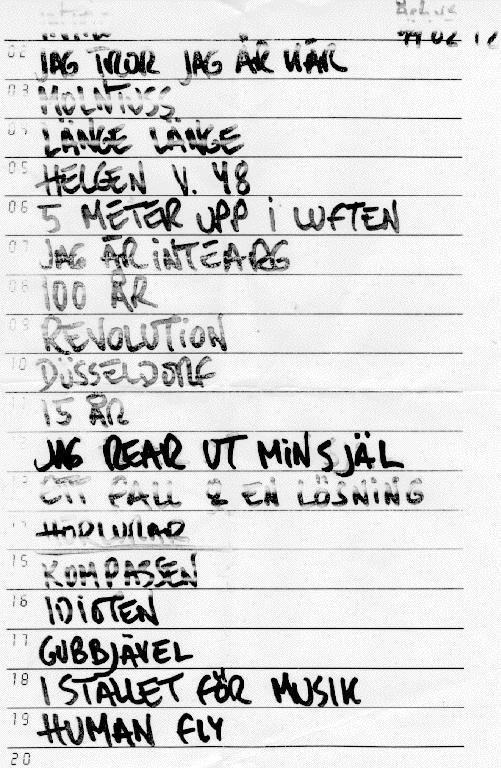 99 02 12
02 JAG TROR JAG ÄR KÄR
03 MOLNTUSS
04 LÄNGE LÄNGE
05 HELGEN V. 48
06 5 METER UPP i LUFTEN
07 JAG ÄR iNTE ARG
08 100 ÅR
09 REVOLUTiON
10 DÜSSELDORF
11 15 ÅR
12 JAG REAR UT MiN SJÄL
13 ETT FALL & EN LÖSNiNG
HÖRLURAR
15 KOMPASSEN
16 IDiOTEN
17 GUBBJÄVEL
18 I STÄLLET FÖR MUSIK
19 HUMAN FLY
20